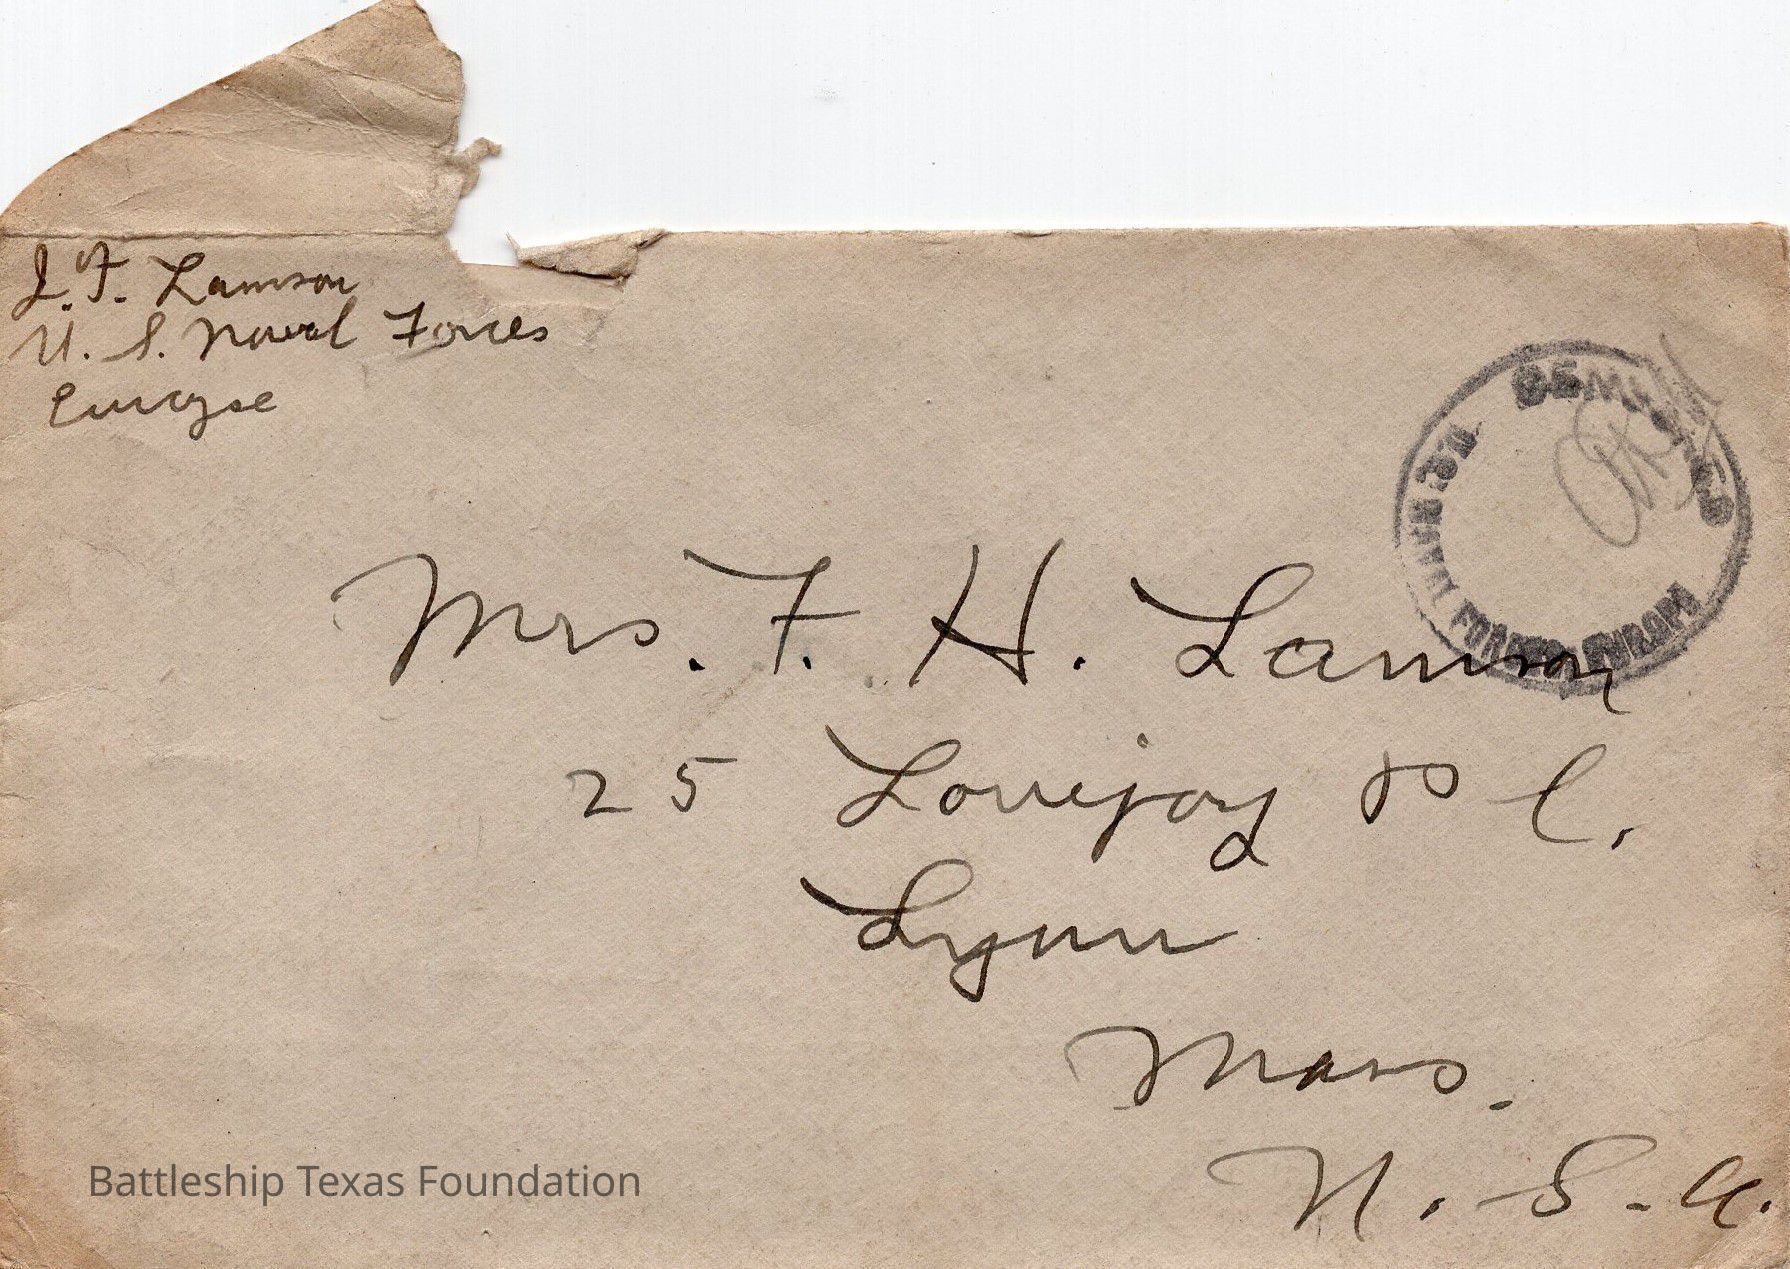 J. F. Lamson
U. S. Naval Forces
Europe
CENSORED
U.S. NAVAL FORCES EUROPE
Mrs. F. H. Lamson
25 Lovejoy Pl.
Lynn
Mass.
U. S. A.
Battleship Texas Foundation